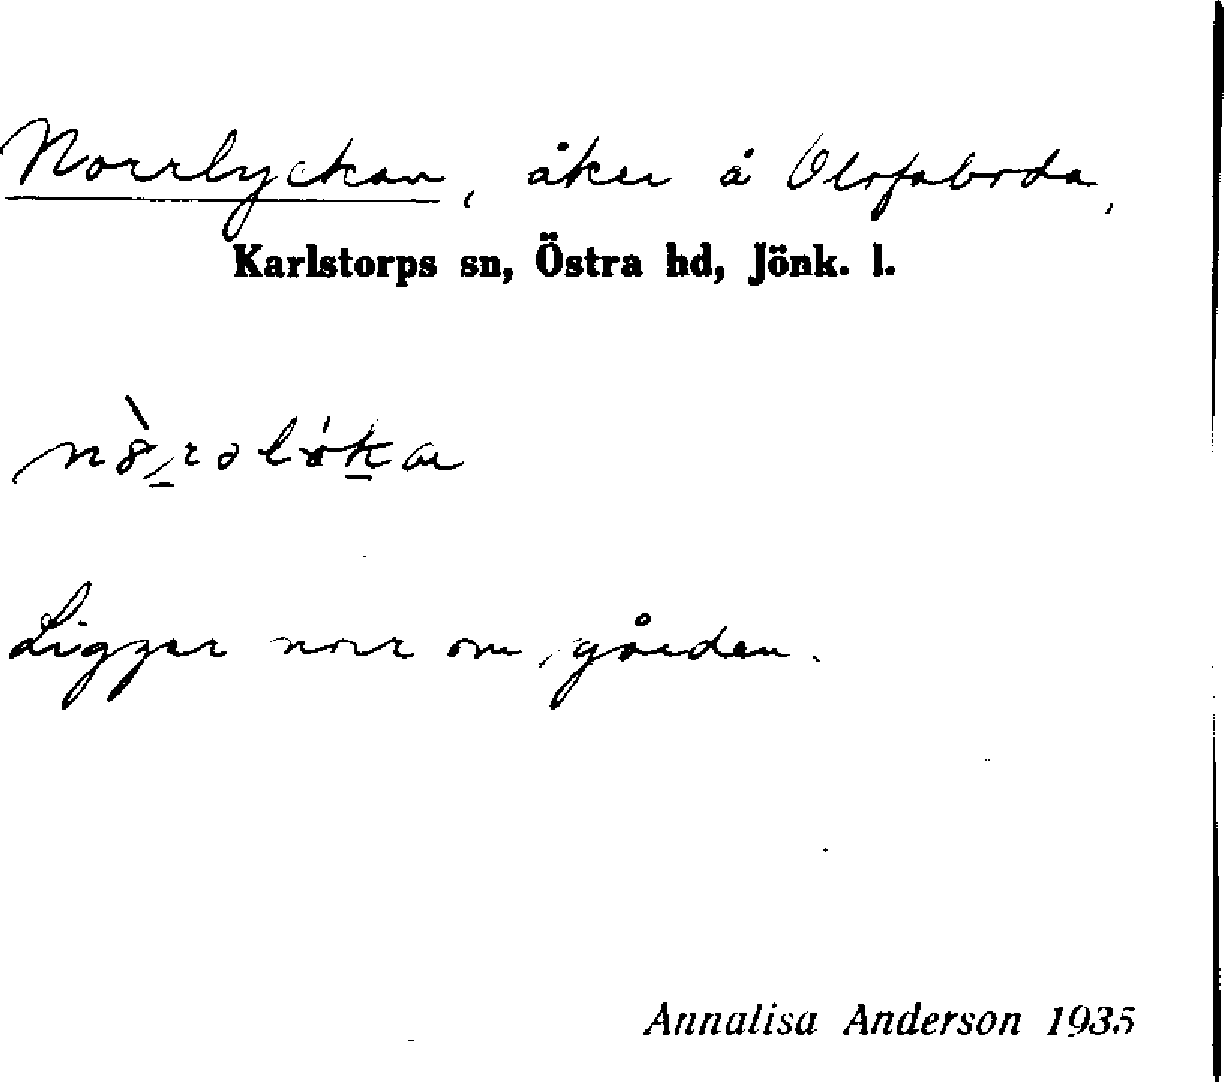 Norrlyckan, åker å Olofsboda,
Karlstorps sn, Östra hd, Jönk. l.
Ligger norr om gården.
Annalisa Anderson 1935